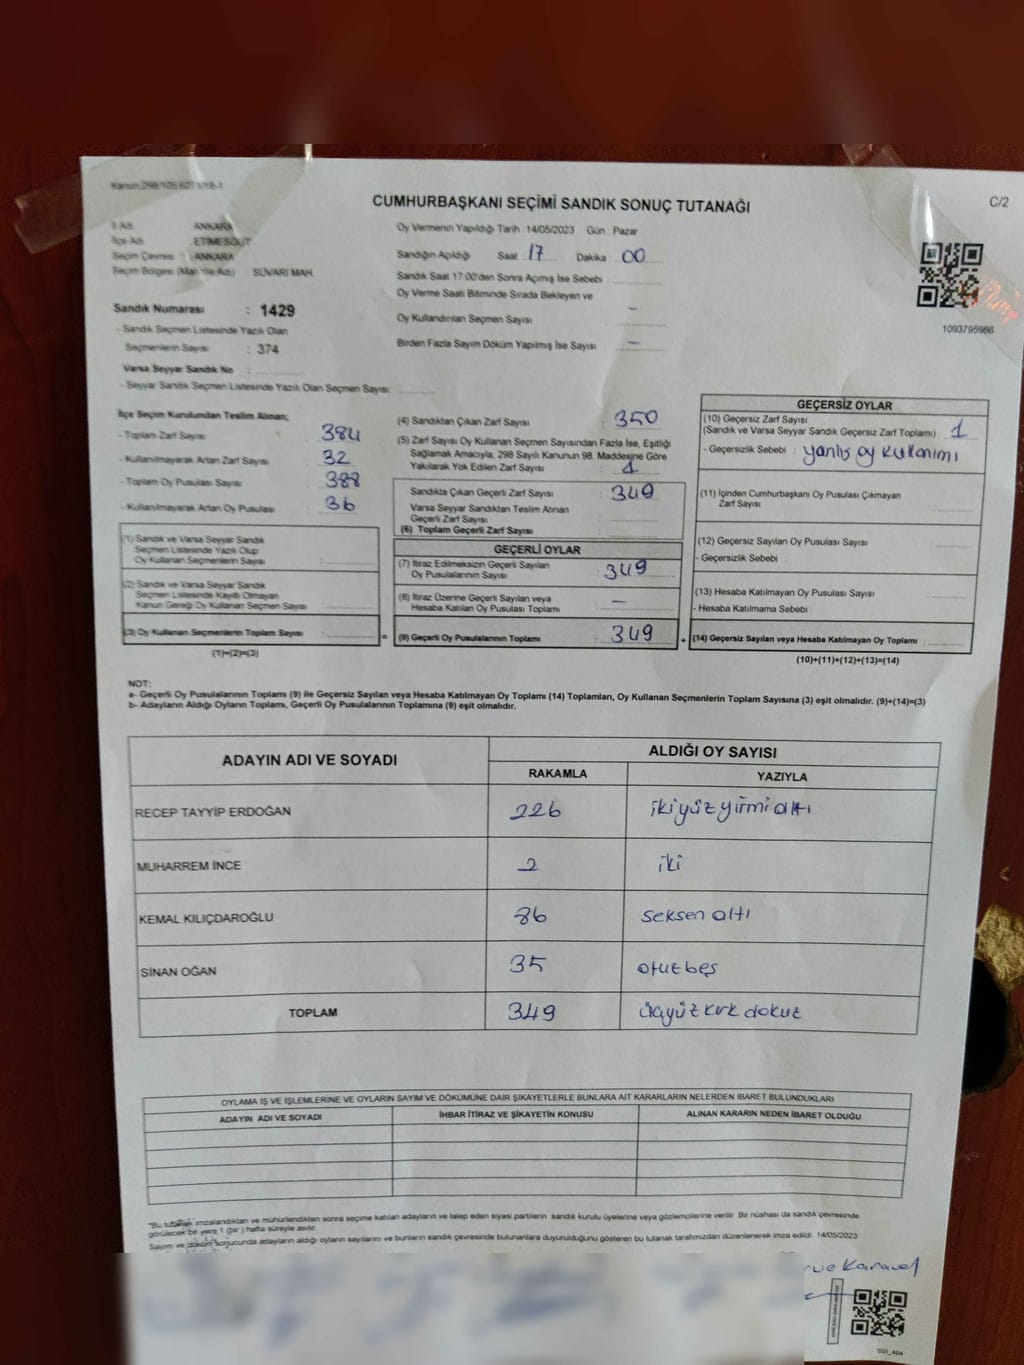 Kanun:298/105,6271/18-1
CUMHURBAŞKANI SEÇİMİ SANDIK SONUÇ TUTANAĞI
C/2
İl Adı : ANKARA
İlçe Adı : ETİMESGUT
Seçim Çevresi : ANKARA
Seçim Bölgesi (Mahalle Adı) : SÜVARİ MAH.
Sandık Numarası : 1429
- Sandık Seçmen Listesinde Yazılı Olan
Seçmenlerin Sayısı : 374
Varsa Seyyar Sandık No :
- Seyyar Sandık Seçmen Listesinde Yazılı Olan Seçmen Sayısı:
Oy Vermenin Yapıldığı Tarih :14/05/2023 Gün : Pazar
Sandığın Açıldığı Saat : 17 Dakika : 00
Sandık Saat 17:00'den Sonra Açımış İse Sebebi :
Oy Verme Saati Bitiminde Sırada Bekleyen ve
Oy Kullandırılan Seçmen Sayısı : –
Birden Fazla Sayım Döküm Yapılmış İse Sayısı : –
1093795986
İlçe Seçim Kurulundan Teslim Alınan;
- Toplam Zarf Sayısı : 384
- Kullanılmayarak Artan Zarf Sayısı : 32
- Toplam Oy Pusulası Sayısı : 388
- Kullanılmayarak Artan Oy Pusulası : 36
(1) Sandık ve Varsa Seyyar Sandık
Seçmen Listesinde Yazılı Olup
Oy Kullanan Seçmenlerin Sayısı :
(2) Sandık ve Varsa Seyyar Sandık
Seçmen Listesinde Kayıtlı Olmayan
Kanun Gereği Oy Kullanan Seçmen Sayısı :
(3) Oy Kullanan Seçmenlerin Toplam Sayısı :
(1)+(2)=(3)
(4) Sandıktan Çıkan Zarf Sayısı : 350
(5) Zarf Sayısı Oy Kullanan Seçmen Sayısından Fazla İse, Eşitliği
Sağlamak Amacıyla, 298 Sayılı Kanunun 98. Maddesine Göre
Yakılarak Yok Edilen Zarf Sayısı : 1
Sandıkta Çıkan Geçerli Zarf Sayısı : 349
Varsa Seyyar Sandıktan Teslim Alınan
Geçerli Zarf Sayısı :
(6) Toplam Geçerli Zarf Sayısı :
GEÇERLİ OYLAR
(7) İtiraz Edilmeksizin Geçerli Sayılan
Oy Pusulalarının Sayısı : 349
(8) İtiraz Üzerine Geçerli Sayılan veya
Hesaba Katılan Oy Pusulası Toplamı : –
= (9) Geçerli Oy Pusulalarının Toplamı : 349 +
GEÇERSİZ OYLAR
(10) Geçersiz Zarf Sayısı
(Sandık ve Varsa Seyyar Sandık Geçersiz Zarf Toplamı) : 1
- Geçersizlik Sebebi : yanlış oy kullanımı
(11) İçinden Cumhurbaşkanı Oy Pusulası Çıkmayan
Zarf Sayısı :
(12) Geçersiz Sayılan Oy Pusulası Sayısı :
- Geçersizlik Sebebi :
(13) Hesaba Katılmayan Oy Pusulası Sayısı :
- Hesaba Katılmama Sebebi :
(14) Geçersiz Sayılan veya Hesaba Katılmayan Oy Toplamı :
(10)+(11)+(12)+(13)=(14)
NOT:
a- Geçerli Oy Pusulalarının Toplamı (9) ile Geçersiz Sayılan veya Hesaba Katılmayan Oy Toplamı (14) Toplamları, Oy Kullanan Seçmenlerin Toplam Sayısına (3) eşit olmalıdır. (9)+(14)=(3)
b- Adayların Aldığı Oyların Toplamı, Geçerli Oy Pusulalarının Toplamına (9) eşit olmalıdır.
ADAYIN ADI VE SOYADI ALDIĞI OY SAYISI
RAKAMLA YAZIYLA
RECEP TAYYİP ERDOĞAN 226 ikiyüzyirmialtı
MUHARREM İNCE 2 iki
KEMAL KILIÇDAROĞLU 86 seksen altı
SİNAN OĞAN 35 otuzbeş
TOPLAM 349 üçyüzkırk dokuz
OYLAMA İŞ VE İŞLEMLERİNE VE OYLARIN SAYIM VE DÖKÜMÜNE DAİR ŞİKAYETLERLE BUNLARA AİT KARARLARIN NELERDEN İBARET BULUNDUKLARI
ADAYIN ADI VE SOYADI İHBAR İTİRAZ VE ŞİKAYETİN KONUSU ALINAN KARARIN NEDEN İBARET OLDUĞU
*Bu tutanak imzalandıktan ve mühürlendikten sonra seçime katılan adayların ve talep eden siyasi partilerin sandık kurulu üyelerine veya gözlemcilerine verilir. Bir nüshası da sandık çevresinde
görülecek bir yere 1 (bir) hafta süreyle asılır.
Sayım ve döküm sonucunda adayların aldığı oyların sayılarını ve bunların sandık çevresinde bulunanlara duyurulduğunu gösteren bu tutanak tarafımızdan düzenlenerek imza edildi. 14/05/2023